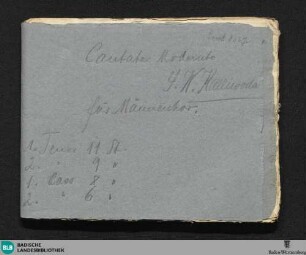 Cantabile Moderato
J. W. Kalliwoda
für Männerchor.
1. Tenor 11 St.
2. " 9 "
1. Bass 8 "
2. " 6 "
BLB BADISCHE
LANDESBIBLIOTHEK
Baden-Württemberg